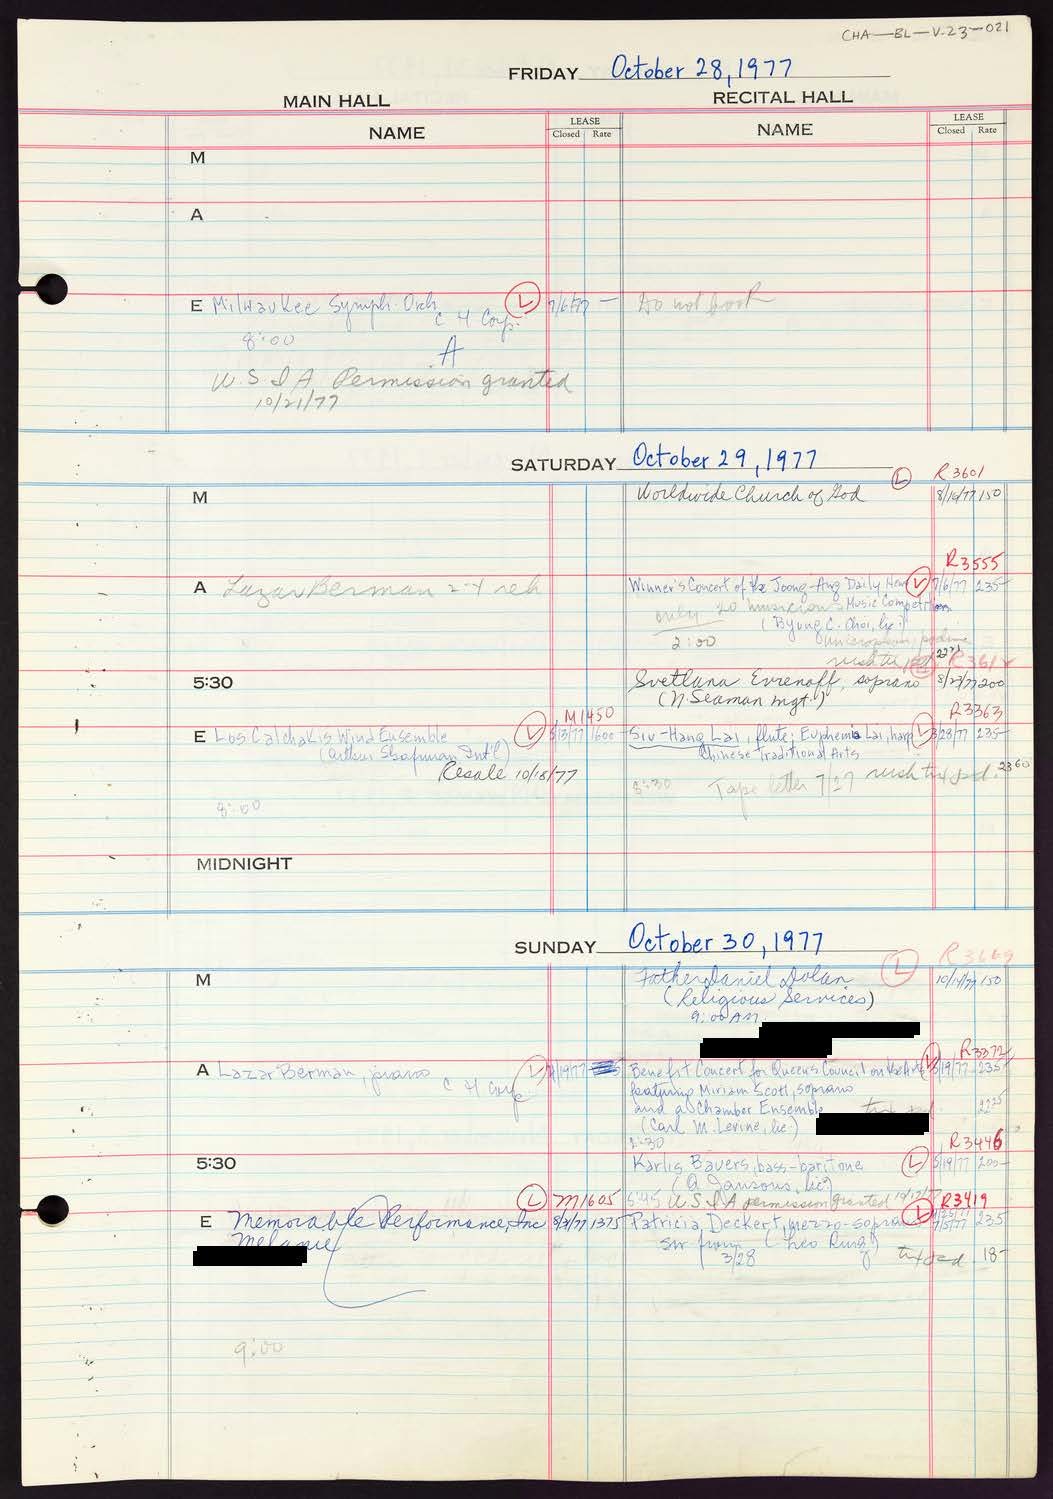 CHA-BL-V.23-021
FRIDAY October 28, 1977
MAIN HALL RECITAL HALL
NAME LEASE Closed Rate NAME LEASE Closed Rate
M
A
E Milwaukee Symph. Orch. L 7/6/77 — Do not book
C H Corp.
8:00
A
U.S.I.A. Permission granted
10/21/77
SATURDAY October 29, 1977
L R3601
M Worldwide Church of God 8/16/77 150
R3555
A Lazar Berman 2-4 reh Winner's Concert of the Joong-Ang Daily News L 7/6/77 235-
only 20 musicians Music Competition
(Byung C. Choi, lic.)
2:00
5:30 Svetlana Evrenoff, soprano 8/23/77 200
(N Seaman mgt.)
M1450 R3363
E Los Calchakis Wind Ensemble L 5/13/77 1600- Siu-Hang Lai, flute; Euphemia Lai, harp L 3/28/77 235-
(Arthur Shafman Int'l) Chinese Traditional Arts
Resale 10/18/77
8:30 Tape letter 7/27 2360
8:00
MIDNIGHT
SUNDAY October 30, 1977
L R3669
M Father Daniel Dolan 10/14/77 150
(Religious Services)
9:00 AM
R3372
A Lazar Berman, piano L Benefit Concert for Queens Council on the Arts L 235-
C H Corp featuring Miriam Scott, soprano
and a Chamber Ensemble
(Carl M. Levine, lic.)
2:30
R3446
5:30 Karlis Bauers, bass-baritone L 5/19/77 200-
(A Jansons, lic.)
L M1605 5:45 U S I A permission granted R3419
E Memorable Performance, Inc 8/3/77 1375 Patricia Deckert, mezzo-soprano L 7/5/77 235
Melanie (Leo Ruiz)
3/28 18-
9:00